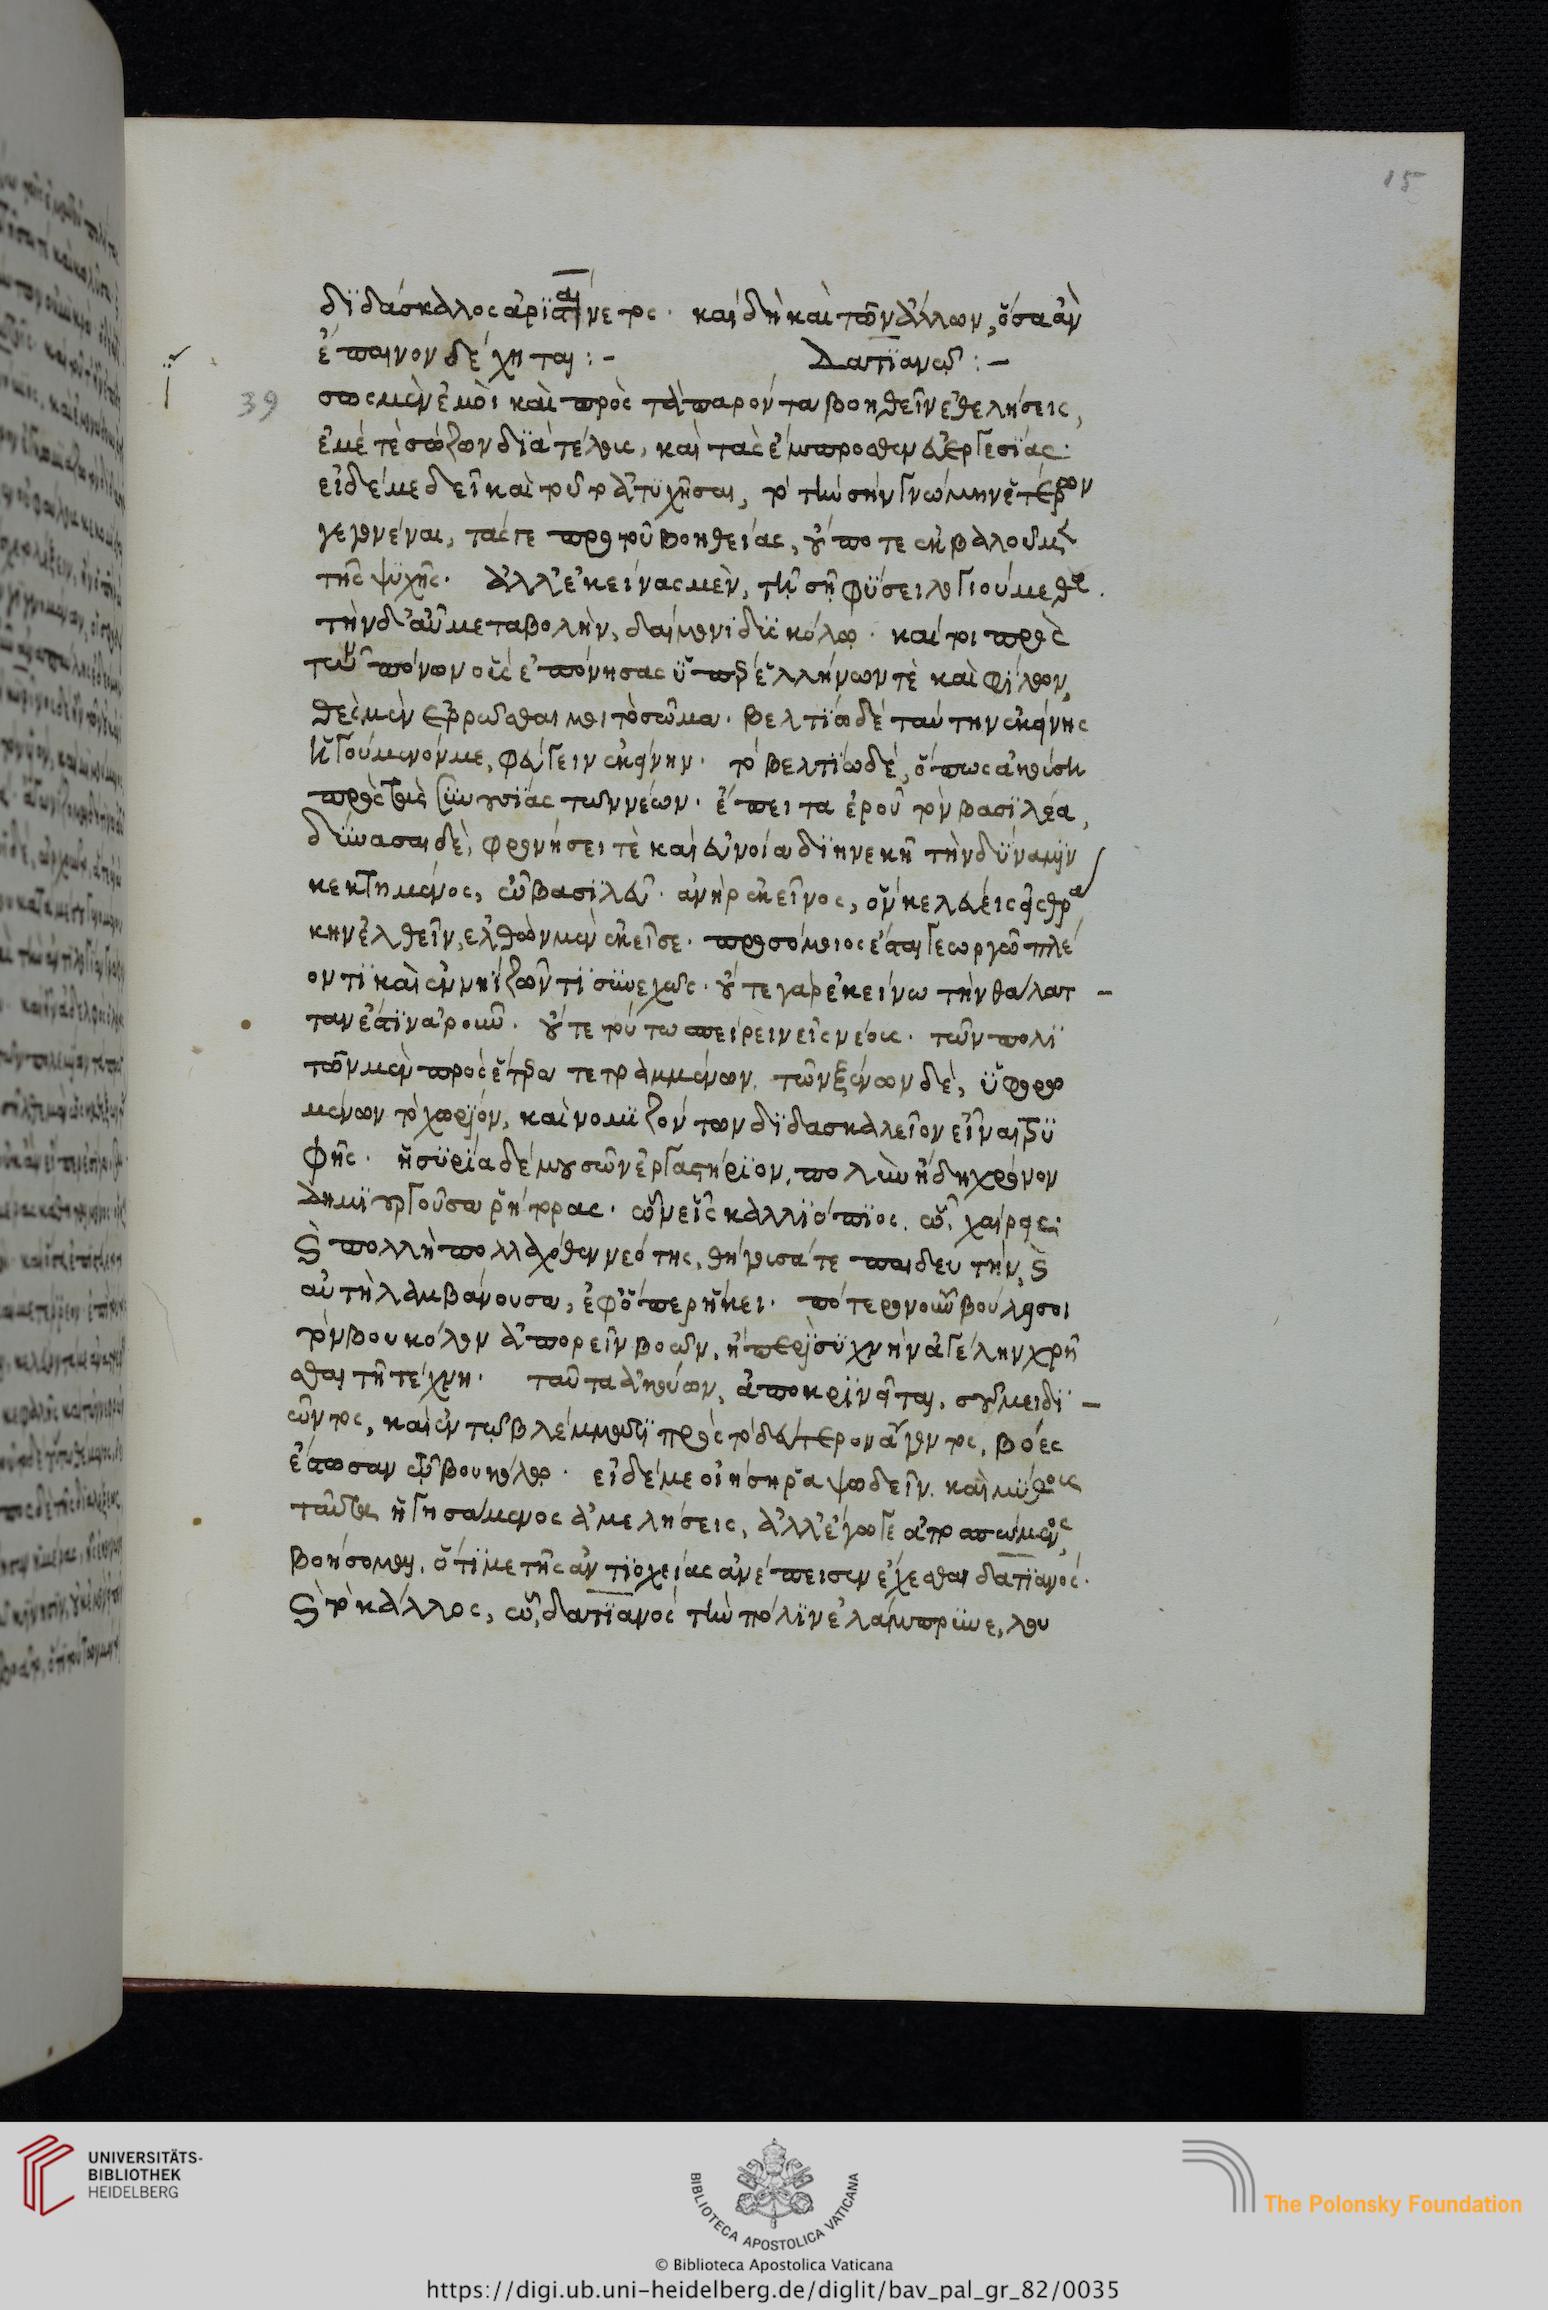 15
διδάσκαλος ἀρισταίνετος· καὶ δὴ καὶ τῶν ἄλλων, ὅσα ἂν
ἔπαινον δέχηται:– Δατιανῷ:–
39 σως μὲν ἐμοὶ καὶ πρὸς τὰ παρόντα βοηθεῖν ἐθελήσεις,
ἐμέ τε σώζων διατέλοις, καὶ τὰς ἔμπροσθεν εὐεργεσίας·
εἰ δέ με δεῖ καὶ τοῦτο ἀτυχῆσαι, τὸ τὴν σὴν γνώμην ἕτερον
γεγονέναι, τάς γε πρὸ τοῦ βοηθείας, οὔποτε ἐκβαλοῦμεν
τῆς ψυχῆς· ἀλλ' ἐκείνας μὲν, τῇ σῇ φύσει λογιούμεθα.
τὴν δ' αὖ μεταβολὴν, δαίμονι δυσκόλῳ· καίτοι πρὸς
τῶν πόνων οὓς ἐπόνησας ὑπὲρ ἑλλήνων τὲ καὶ φίλων,
θὲς μὲν ἐρρῶσθαί μοι τὸ σῶμα· βελτίω δὲ ταύτην ἐκείνης
ἡγούμενόν με, φεύγειν ἐκείνην· τὸ βελτίω δὲ, ὅπως ἀκούσῃ
πρὸς τὰς συνουσίας τῶν νέων· ἔπειτα ἐροῦ τὸν βασιλέα,
δύνασαι δὲ, φρονήσει τὲ καὶ εὐνοίᾳ διηνεκῆ τὴν δύναμιν
κεκτημένος, ὦ βασιλεῦ· ἀνὴρ ἐκεῖνος, ὃν κελεύεις εἰς θρᾴ
κην ἐλθεῖν, ἐλθὼν μὲν ἐκεῖσε· προσόμοιος ἔσται γεωργῷ πλέ
οντι καὶ συνεχῶς· οὔτε γὰρ ἐκείνω τὴν θάλατ–
ταν ἔστιν ἀροῦν· οὔτε τούτω σπείρειν εἰς νέους· τῶν πολι
τῶν μὲν πρὸς ἕτερα τετραμμένων, τῶν ξένων δὲ,
μένων τὸ χωρίον, καὶ νομιζόντων διδασκαλεῖον εἶναι τρυ
φῆς· ἡ συρία δέ μουσῶν ἐργαστήριον, πολὺν ἤδη χρόνον
δημιουργοῦσα ῥήτορας· ὧν εἷς καλλιόπιος, ᾧ χαίρεις·
καὶ πολλὴ πολλαχόθεν νεότης, θηρῶσά τε παιδευτὴν, καὶ
αὐτὴ λαμβάνουσα, ἐφ' ὅπερ ἥκει· πότερον οὖν βούλῃ σοι
τὸν βουκόλον ἀπορεῖν βοῶν, ἢ περὶ συχνὴν ἀγέλην χρῆ
σθαι τῇ τέχνῃ· ταῦτα ἀκούων, ἀποκρινεῖται, σοῦ μειδι–
ῶντος, καὶ ἐν τῷ βλέμματι πρὸς τὸ δεύτερον ἄγοντος, βόες
ἔστωσαν τῷ βουκόλῳ· εἰ δέ με οἰήσῃ ῥαψωδεῖν, καὶ μύθους
ταῦτα ἡγησάμενος ἀμελήσεις, ἀλλ' ἔγωγε ἀποσπώμενος
βοήσομαι, ὅτι με τῆς ἀντιοχείας ἀνέπεισεν ἔχεσθαι δατιανός·
καὶ τὸ κάλλος, ᾧ δατιανὸς τὴν πόλιν ἐλάμπρυνε, λου
UNIVERSITÄTS-
BIBLIOTHEK
HEIDELBERG
BIBLIOTECA APOSTOLICA VATICANA
The Polonsky Foundation
© Biblioteca Apostolica Vaticana
https://digi.ub.uni-heidelberg.de/diglit/bav_pal_gr_82/0035